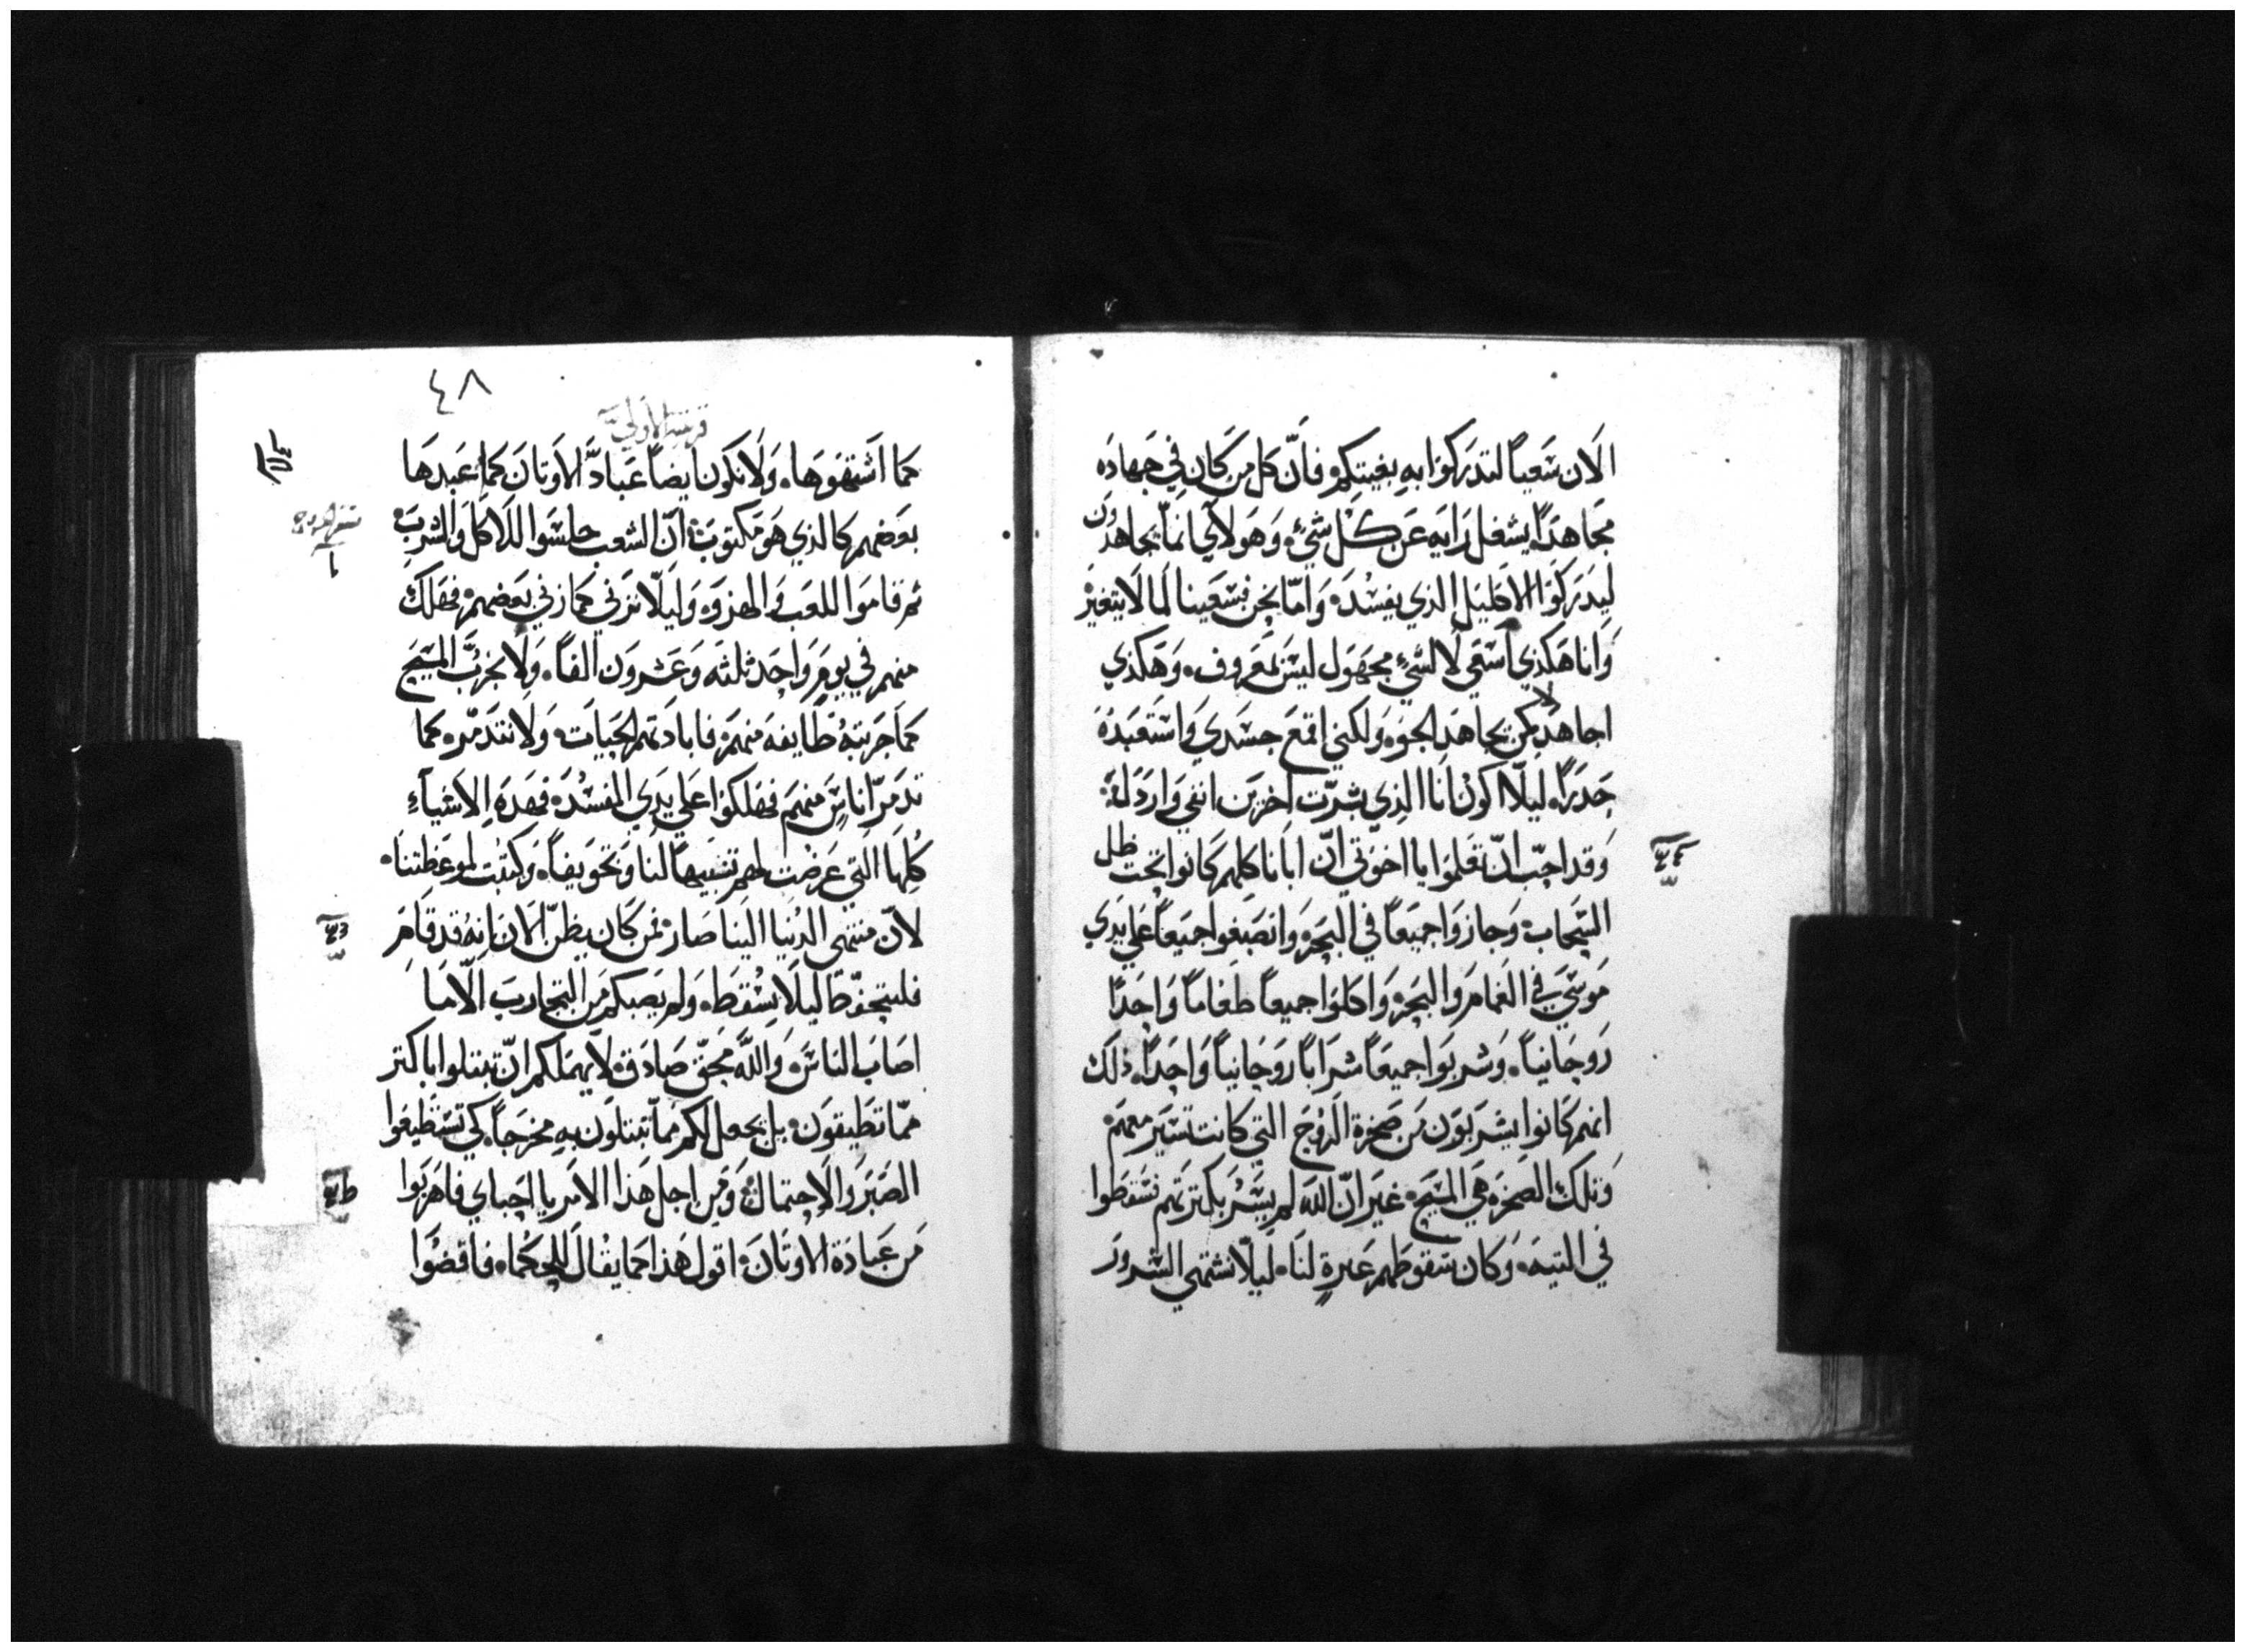 الان سَعياً لتدركوا به بغيتكم فانّ كل من كان في جهاده
مجاهداً يشغل رايه عن كل شيء وهولاي انما يجاهدون
ليدركوا الاكليل الذي يفسد وامّا نحن فسعينا لما لا يتغير
وانا هكذي اسعي لا لشيء مجهول ليس بمعروف وهكذي
اجاهد لا كمن يجاهد الجو ولكني اقمع جسدي واستعبده
حدراً ليلّا اكون انا الذي بشرّت اخرين انفي واردله
وقد احبّ انّ تعلموا يا اخوتي انّ ابانا كلهم كانوا تحت ظل
السحاب وجازوا جميعاً في البحر وانصبغوا جميعاً علي يدي
موسي في الغمام والبحر واكلوا جميعاً طعاماً واحداً
روحانياً وشربوا جميعاً شراباً روحانياً واحداً ذلك
انهم كانوا يشربون من صخرة الروح التي كانت تسير معهم
وتلك الصخره هي المسيح غير انّ الله لم يسر بكثرتهم فسقطوا
في التيه وكان سقوطهم عبرةٍ لنا ليلّا نشتهي الشرور
٤٨
قرنتيه الاولي
كما اشتهوها ولا نكون ايضاً عبادَّ الاوتان كما عبدها
بعضهم كالذي هو مكتوب انّ الشعب جلسوا للاكل والشرب
ثم قاموا اللعب والهزوه وليلّا نزني كما زني بعضهم فهلك
منهم في يومٍ واحد ثلثه وعشرون الفاً ولا نجربَّ المسيح
كما جربته طايفه منهم فابادتهم الحيات ولا نتدمّر كما
تدمرّ اناسٍ منهم فهلكوا علي يدي المفسد فهده الاشيآءِ
كلها التي عرضت لهم تشبيهاً لنا وتخويفاً وكتبت لموعظتنا
لانّ منتهي الدنيا الينا صار فمن كان يظنّ الان انه قد قام
فليتحفّظ ليلا يسقط ولم يصبكم من التجارب الّا ما
اصاب الناس والله محقّ صادق لا يهملكم انّ تبتلوا باكتر
ممّا تطيقون بل يجعل لكم ممّا تبتلون به مخرجاً كي تستطيعوا
الصبر والاحتمال ومن اجل هذا الامر يا احباي فاهربوا
من عبادة الاوتان اقول هذا كما يقال للحكما فاقضوا